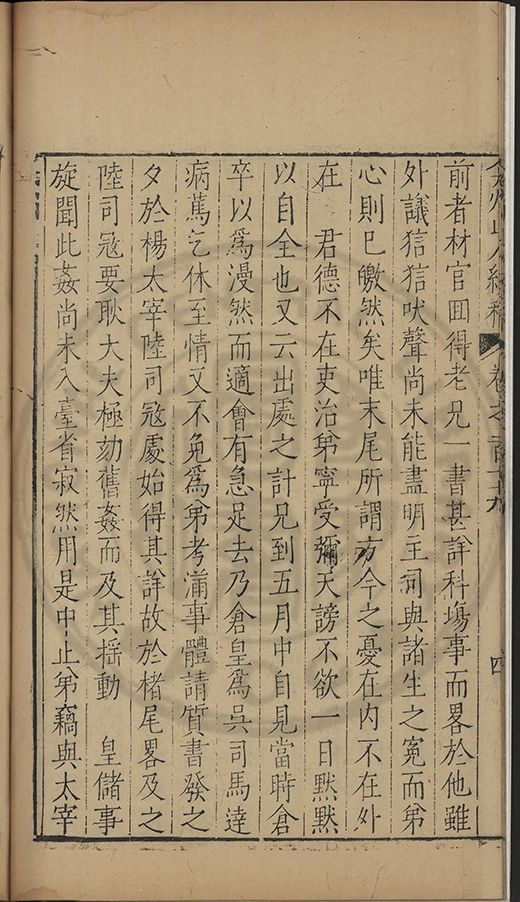 弇州山人續稿 卷之一百十九 四
前者材官囬得老兄一書甚詳科塲事而畧於他雖
外議狺狺吠聲尚未能盡明主司與諸生之寃而弟
心則巳皦然矣唯末尾所謂方今之憂在内不在外
在 君德不在吏治弟寧受彌天謗不欲一日默默
以自全也又云出處之計兄到五月中自見當時倉
卒以爲漫然而適會有急足去乃倉皇爲吳司馬逹
病篤乞休至情又不免爲弟考滿事體請質書發之
夕於楊太宰陸司宼處始得其詳故於楮尾畧及之
陸司宼要耿大夫極劾舊姦而及其揺動 皇儲事
旋聞此姦尚未入臺省寂然用是中止弟竊與太宰